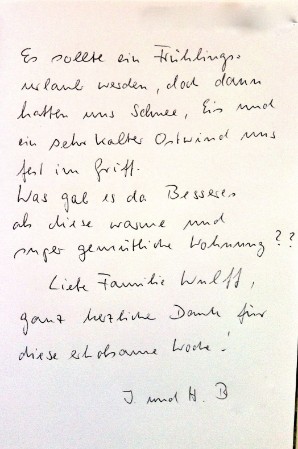 Es sollte ein Frühlings-
urlaub werden, doch dann
hatten uns Schnee, Eis und
ein sehr kalter Ostwind uns
fest im Griff.
Was gab es da Besseres
als diese warme und
super gemütliche Wohnung??
Liebe Familie Wulff,
ganz herzliche Dank für
diese erholsame Woche!
I. und H. B